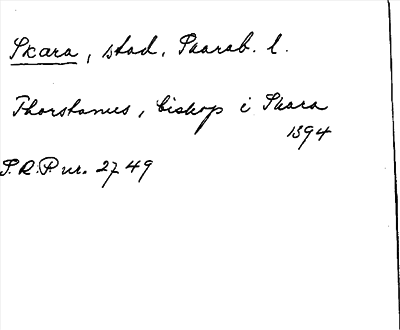 Skara, stad, Skarab. l.
Thorstanus, biskop i Skara
1394
S.R.P nr. 2749